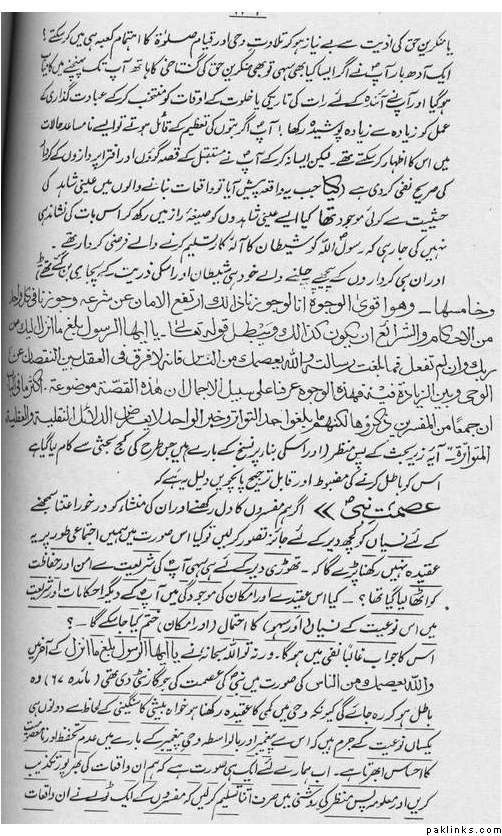 یا منکرین حق کی اذیت سے بے نیاز ہو کر تلاوتِ وحی اور قیام صلوٰۃ کا اہتمام کعبہ ہی میں کر سکتے؟
ایک آدھ بار آپؐ نے اگر ایسا کیا بھی سہی تو بھی منکرین حق کی گستاخی کا ہاتھ آپ تک پہنچنے میں کامیاب
ہو گیا اور آپؐ نے آئندہ کے لئے رات کی تاریکی یا خلوت کے اوقات کو منتخب کر کے عبادت گذاری کے
عمل کو زیادہ سے زیادہ پوشیدہ رکھا! آپؐ اگر بتوں کی تعظیم کے قائل ہوتے تو ایسے نا مساعد حالات
میں اس کا اظہار کر سکتے تھے۔ لیکن ایسا نہ کر کے آپؐ نے مستقبل کے قصہ گوؤں اور افترا پردازوں کے کردار
کی صریح نفی کر دی ہے (کیا جب یہ واقعہ پیش آیا تو واقعات بنانے والوں میں عینی شاہد کی
حیثیت سے کوئی موجود تھا کیا ایسے عینی شاہدوں کو صیغۂ راز میں رکھ کر اس بات کی نشاندہی
نہیں کی جا رہی کہ رسول اللہ کو شیطان کا آلۂ کار تسلیم کرنے والے فرضی کردار تھے۔
اور ان ہی کرداروں کے پیچھے چلنے والے خود ہی شیطان اور اسکی ذریت کے پجاری بن گئے تھے)
وخامسها۔ وهو اقوى الوجوه انا لو جوزنا ذالك ارتفع الامان عن شرعه وجوزنا فى كل واحد
من الاحكام والشرائع ان يكون كذالك ويبطل قوله تعالى۔ يا ايها الرسول بلغ ما انزل اليك من
ربك وان لم تفعل فما بلغت رسالته والله يعصمك من الناس فانه لا فرق فى العقل بين النقصان عن
الوحى وبين الزيادة فيه فبهذه الوجوه عرفنا على سبيل الاجمال ان هذه القصة موضوعة۔ اكثر ما فى الباب
ان جمعا من المفسرين ذكروها لكنهم ما بلغوا حد التواتر وخبر الواحد لا يعارض الدلائل النقلية والعقلية
المتواترة۔ آیۂ زیر بحث کے پس منظر (اور اسکی بنا پر نسخ کے بارے میں جس طرح کی کج بحثی سے کام لیا گیا ہے
اس کو باطل کرنے کی مضبوط اور قابل ترجیح پانچویں دلیل یہ ہے کہ
عصمت نبیؐ >> اگر ہم مفسروں کا دل رکھنے اور ان کی منشاء کو درخورِ اعتنا سمجھنے
کے لئے نسیاں کو کچھ دیر کے لئے جائز تصور کر لیں تو کیا اس صورت میں ہمیں اجتماعی طور پر یہ
عقیدہ نہیں رکھنا پڑے گا کہ۔ تھوڑی دیر کے لئے ہی سہی آپؐ کی شریعت سے امن اور حفاظت
کو اٹھا لیا گیا تھا؟۔ کیا اس عقیدے اور امکان کی موجودگی میں آپؐ کے دیگر احکامات اور شریعت
میں اس نوعیت کے نسیاں (اور سہو) کا احتمال (اور امکان) ختم کیا جا سکے گا۔؟
اس کا جواب غالباً نفی میں ہوگا۔ ورنہ تو اللہ سبحانہ نے یا ایها الرسول بلغ ما انزل کے آخر میں
والله يعصمك من الناس کی صورت میں نبیؐ کی عصمت کی جو گارنٹی دی تھی (مائدہ ۶۷) وہ
باطل ہو کر رہ جائے گی کیونکہ وحی میں کمی کا عقیدہ رکھنا ہو خواہ بیشی کا سنگینی کے لحاظ سے دونوں ہی
یکساں نوعیت کے جرم ہیں کہ اس سے پیغمبر اور بالواسطہ وحی پیغمبر کے بارے میں عدم تحفظ اور نا معصومیت
کا احساس ابھرتا ہے۔ اب ہمارے لئے ایک ہی صورت ہے کہ ہم ان واقعات کی بھر پور تکذیب
کریں اور معلومہ پس منظر کی روشنی میں صرف اتنا تسلیم کر لیں کہ مفسروں کے ایک ٹولے نے ان واقعات
paklinks.com